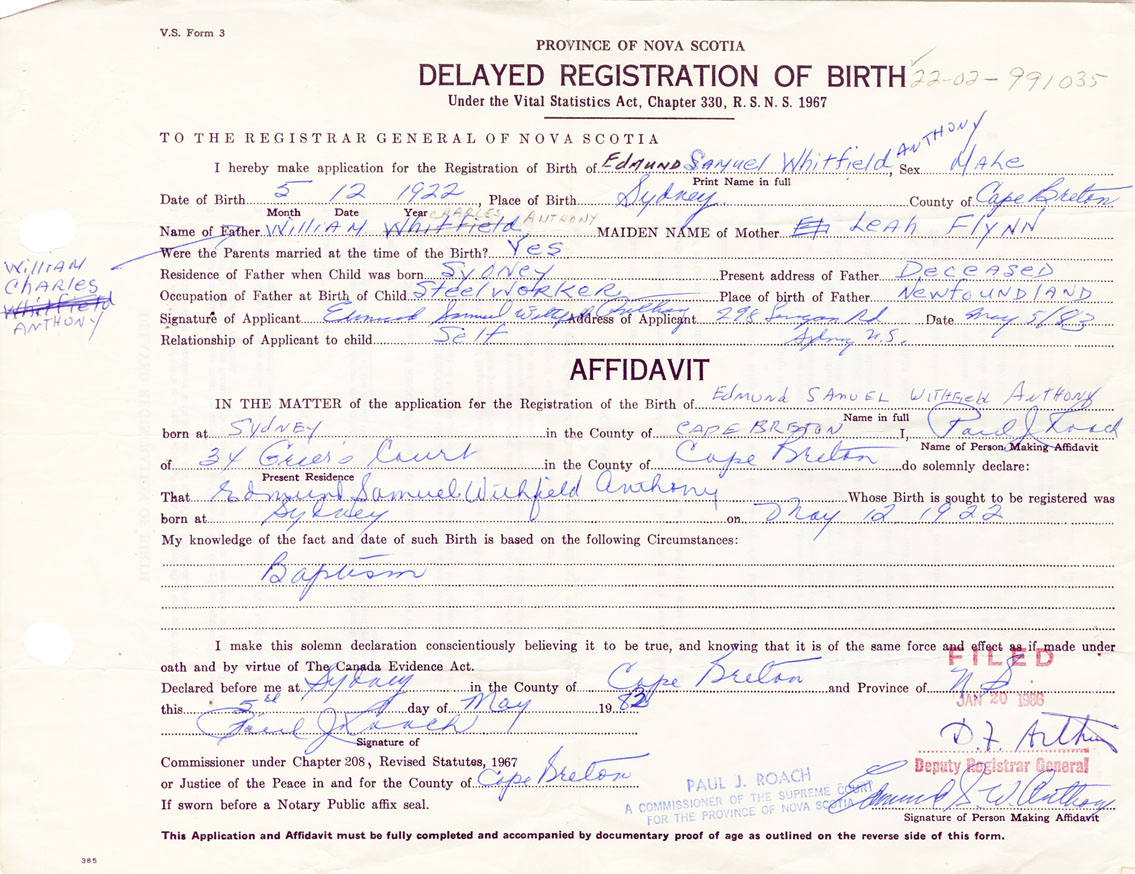 V.S. Form 3
PROVINCE OF NOVA SCOTIA
DELAYED REGISTRATION OF BIRTH 22-02-991035
Under the Vital Statistics Act, Chapter 330, R. S. N. S. 1967
TO THE REGISTRAR GENERAL OF NOVA SCOTIA
ANTHONY
I hereby make application for the Registration of Birth of EDMUND SAMUEL WHITFIELD, Sex MALE
Print Name in full
Date of Birth 5 12 1922, Place of Birth Sydney County of Cape Breton
Month Date Year CHARLES ANTHONY
Name of Father WILLIAM WHITFIELD, MAIDEN NAME of Mother LEAH FLYNN
Were the Parents married at the time of the Birth? YES
WILLIAM
CHARLES
WHITFIELD
ANTHONY
Residence of Father when Child was born SYDNEY Present address of Father DECEASED
Occupation of Father at Birth of Child STEELWORKER Place of birth of Father NEWFOUNDLAND
Signature of Applicant Edmund Samuel Anthony Address of Applicant 298 Rd Date May 5/83
Relationship of Applicant to child Self Sydney N.S.
AFFIDAVIT
IN THE MATTER of the application for the Registration of the Birth of EDMUND SAMUEL WITHFIELD ANTHONY
Name in full
born at SYDNEY in the County of CAPE BRETON I, Paul J Roach
Name of Person Making Affidavit
of 34 Court in the County of Cape Breton do solemnly declare:
Present Residence
That Edmund Samuel Withfield Anthony Whose Birth is sought to be registered was
born at Sydney on May 12 1922
My knowledge of the fact and date of such Birth is based on the following Circumstances:
Baptism
I make this solemn declaration conscientiously believing it to be true, and knowing that it is of the same force and effect as if made under
oath and by virtue of The Canada Evidence Act.
FILED
Declared before me at Sydney in the County of Cape Breton and Province of N.S.
JAN 20 1986
this 5 day of May 19
Paul J Roach
Signature of
D. F. Arthur
Deputy Registrar General
Commissioner under Chapter 208, Revised Statutes, 1967
or Justice of the Peace in and for the County of Cape Breton
If sworn before a Notary Public affix seal.
PAUL J. ROACH
A COMMISSIONER OF THE SUPREME COURT
FOR THE PROVINCE OF NOVA SCOTIA
Edmund S. W. Anthony
Signature of Person Making Affidavit
This Application and Affidavit must be fully completed and accompanied by documentary proof of age as outlined on the reverse side of this form.
385